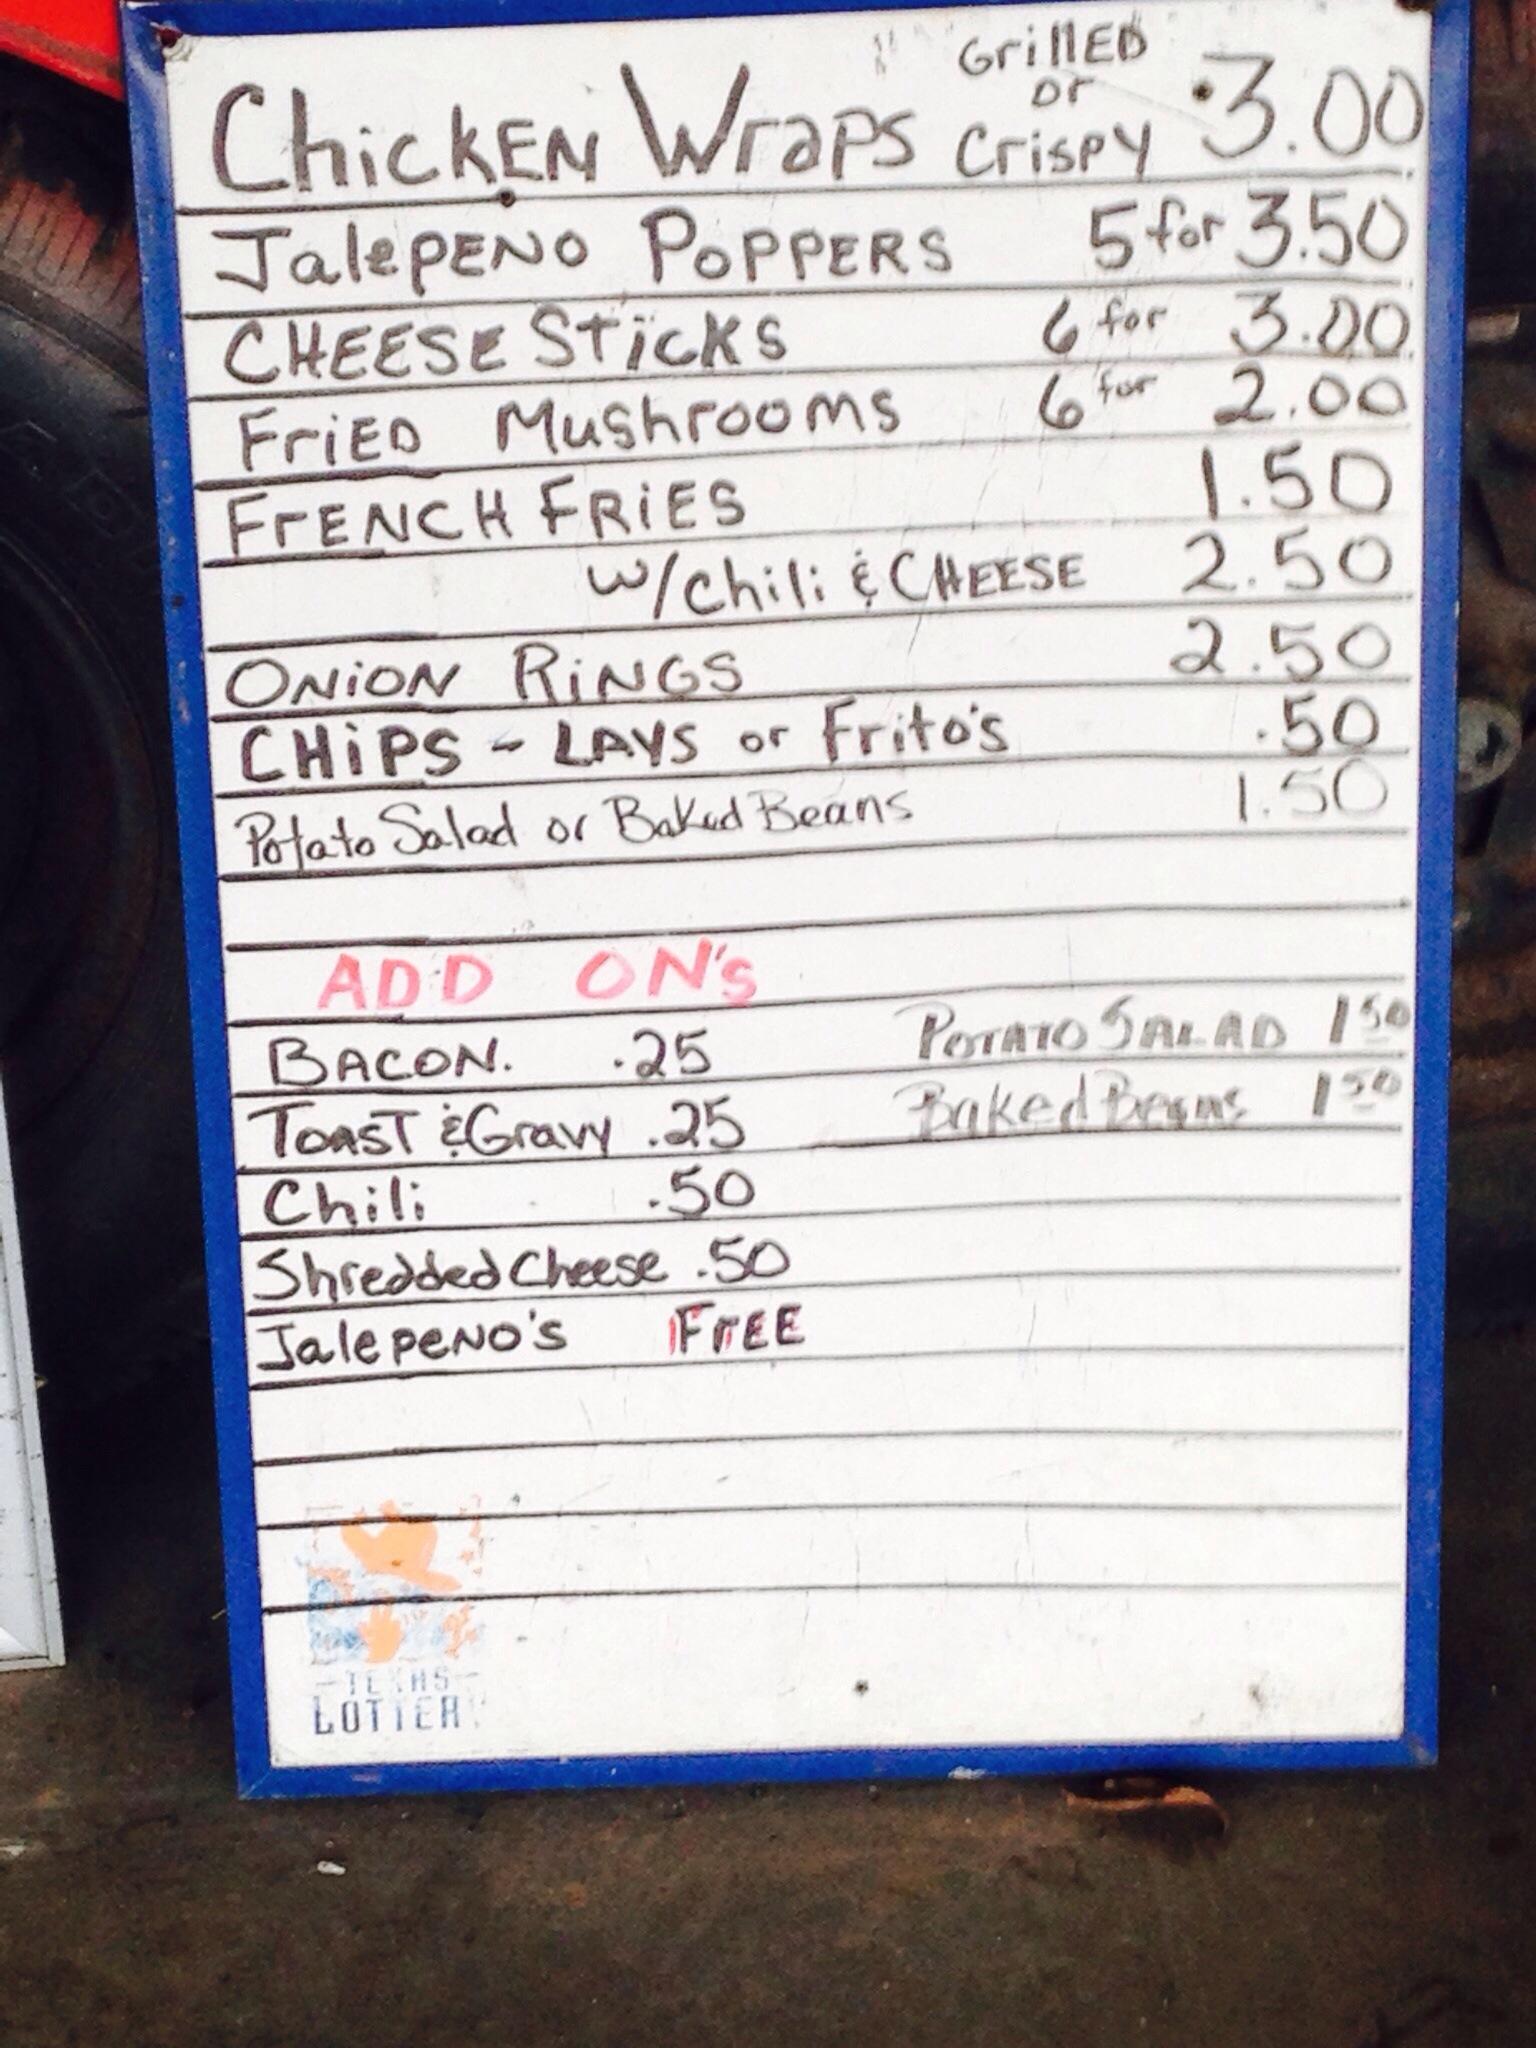 Chicken Wraps Grilled or Crispy 3.00
Jalepeno Poppers 5 for 3.50
Cheese Sticks 6 for 3.00
Fried Mushrooms 6 for 2.00
French Fries 1.50
w/ Chili & Cheese 2.50
Onion Rings 2.50
Chips - Lays or Frito's .50
Potato Salad or Baked Beans 1.50
ADD ON's
Bacon. .25 Potato Salad 1 50
Toast & Gravy .25 Baked Beans 1 50
Chili .50
Shredded Cheese .50
Jalepeno's Free
TEXAS
LOTTERY